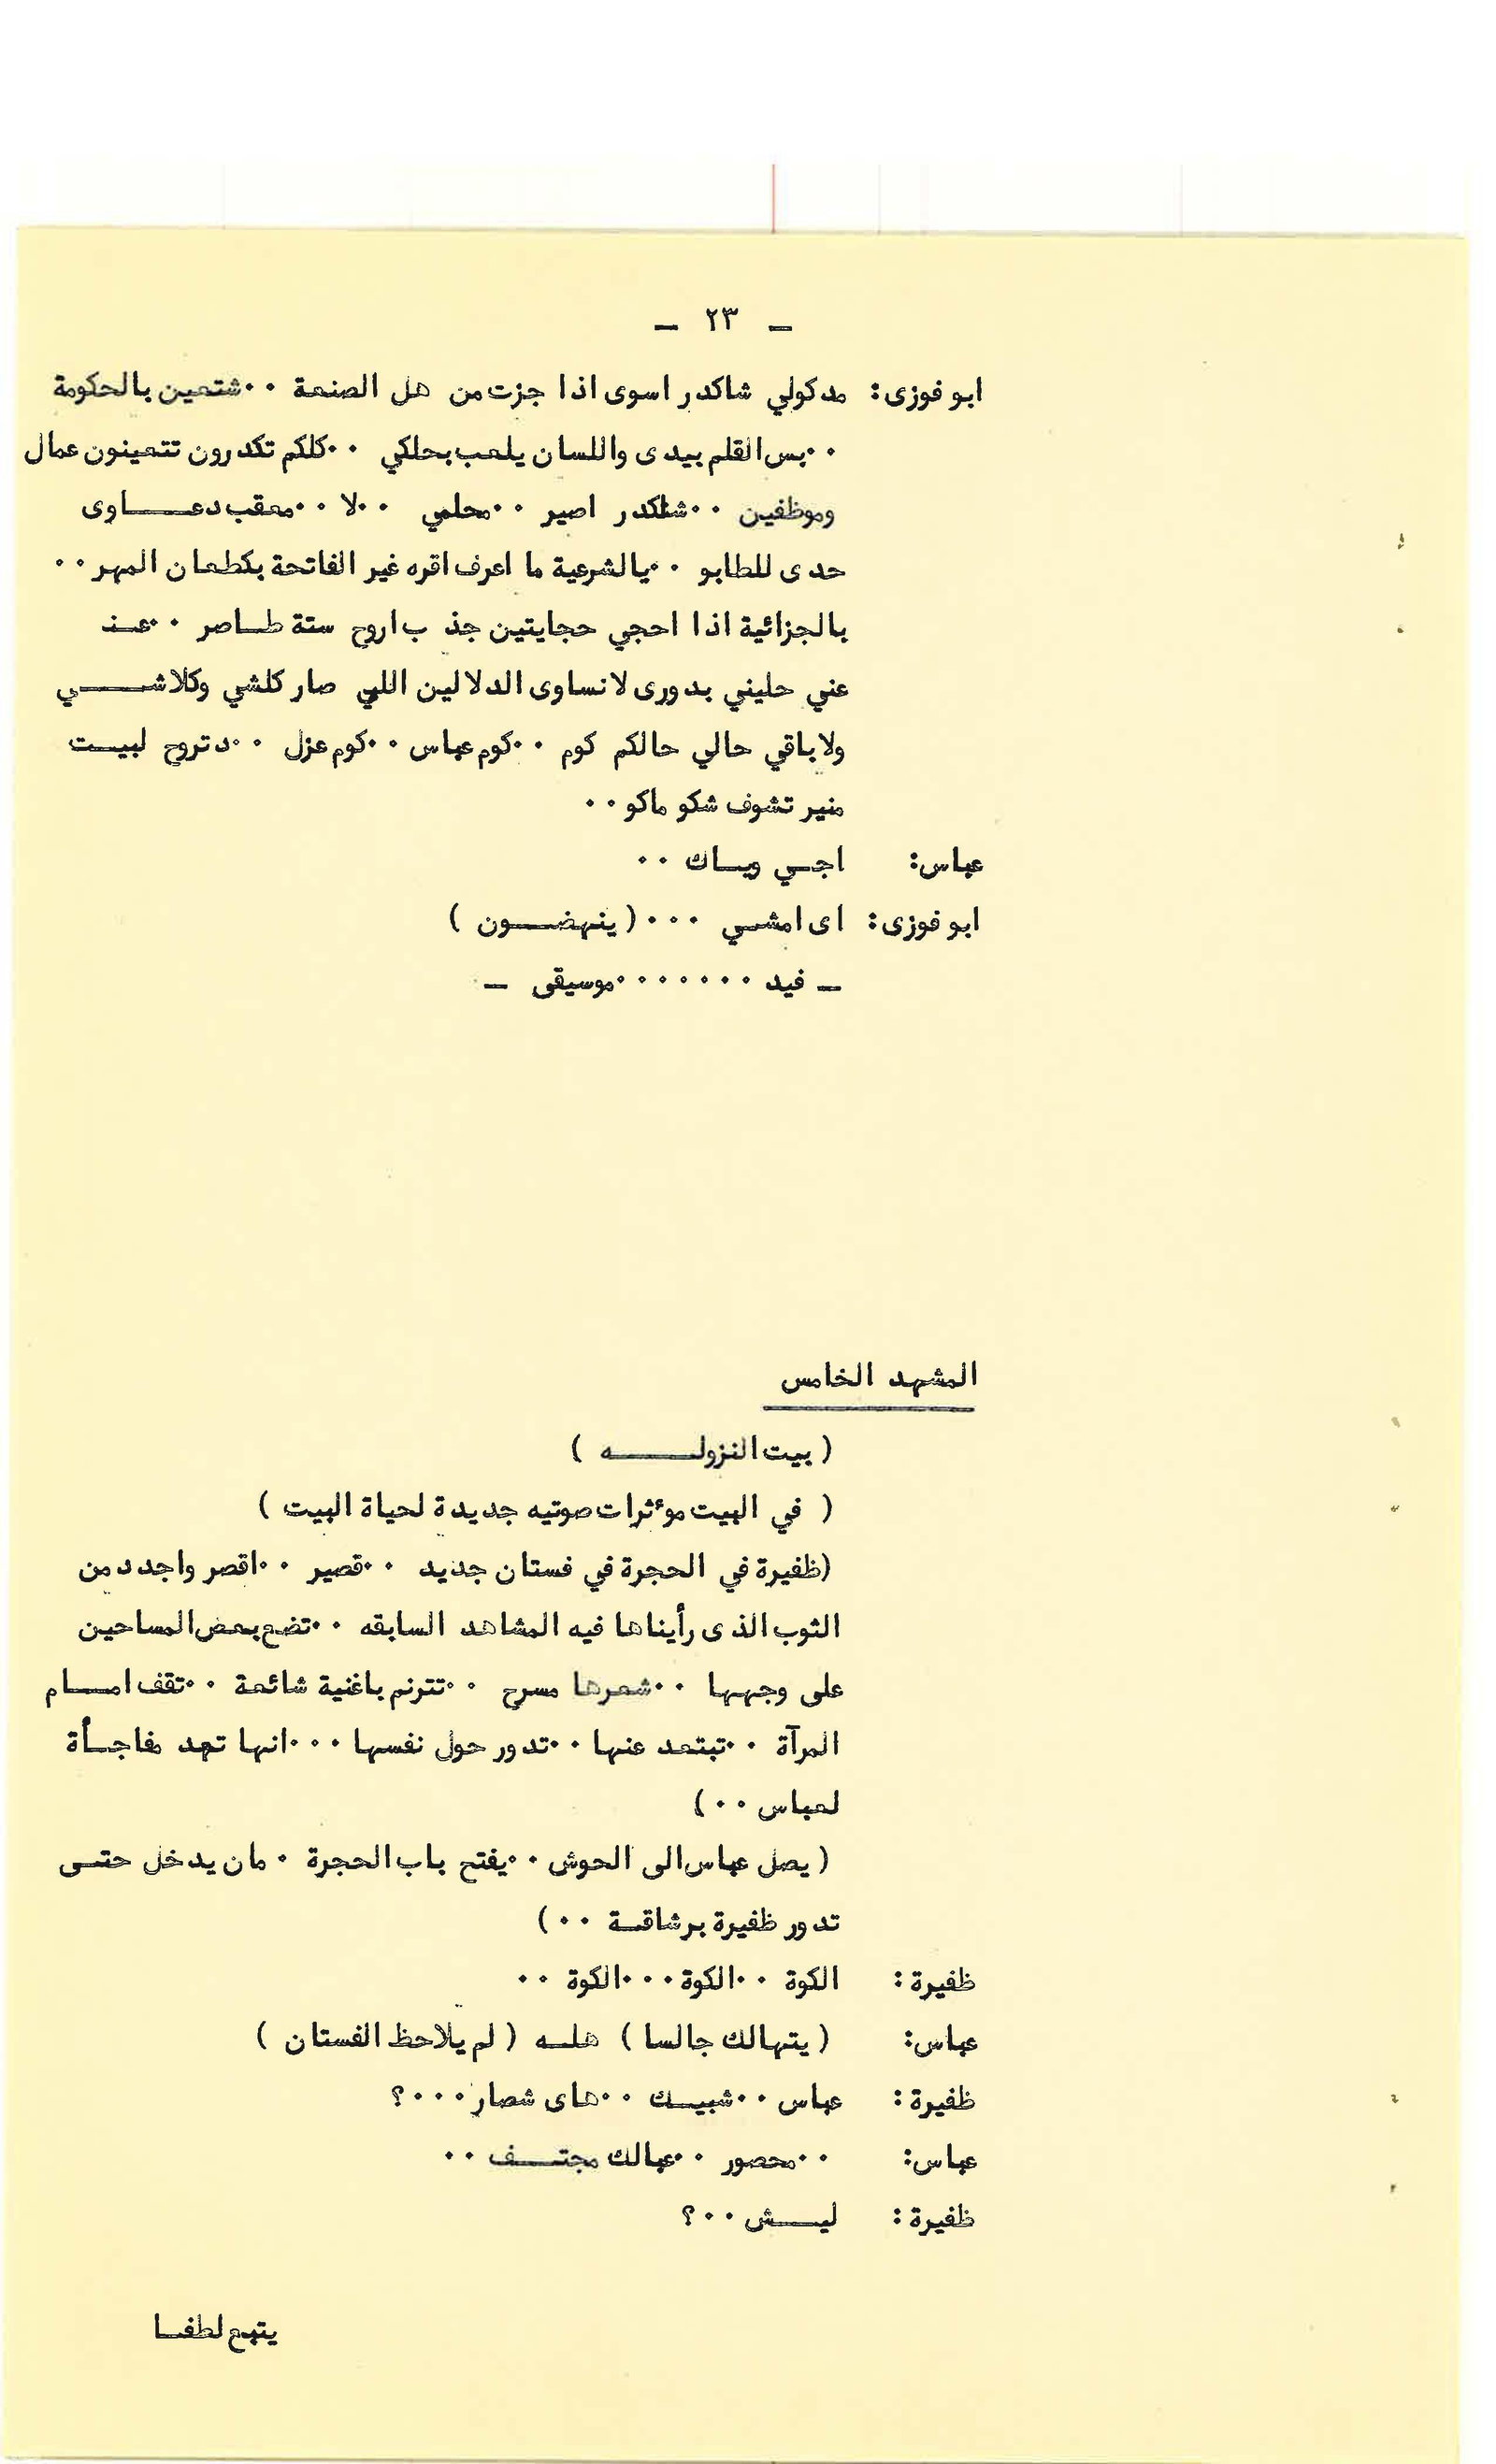 — ٢٣ —
ابو فوزى: مدكولي شاكدر اسوى اذا جزت من هل الصنعة ٠٠ شتعين بالحكومة
٠٠ بس القلم بيدى واللسان يلعب بحلكي ٠٠ كلكم تكدرون تتعينون عمال
وموظفين ٠٠ شلكدر اصير ٠٠ محلمي ٠٠ لا ٠٠ معقب دعـــاوى
حدى للطابو ٠٠ يالشرعية ما اعرف اقره غير الفاتحة بكطعان المهر ٠٠
بالجزائية اذا احجي حجايتين جذب اروح ستة طـاصر ٠٠ عـند
عني خليني بدورى لا نساوى الدلالين اللي صار كلشي وكلاشــــي
ولا باقي حالي حالكم كوم ٠٠ كوم عباس ٠٠ كوم عزل ٠٠ دتروح لبيـت
منير تشوف شكو ماكو ٠٠
عباس: اجـي ويـاك ٠٠
ابو فوزى: اى امشـي ٠٠٠ ( ينهضــون )
— فيد ٠٠٠٠٠٠٠ موسيقى —
المشهد الخامس
( بيت النزولــــه )
( في البيت موءثرات صوتيه جديدة لحياة البيت )
(ظفيرة في الحجرة في فستان جديد ٠٠ قصير ٠٠ اقصر واجدد من
الثوب الذى رأيناها فيه المشاهد السابقه ٠٠ تضع بعض المساحين
على وجهها ٠٠ شعرها مسرح ٠٠ تترنم باغنية شائعة ٠٠ تقف امــام
المرآة ٠٠ تبتعد عنها ٠٠ تدور حول نفسها ٠٠٠ انها تعد مفاجـأة
لعباس ٠٠)
( يصل عباس الى الحوش ٠٠ يفتح باب الحجرة ٠ مان يدخل حتـى
تدور ظفيرة برشاقـة ٠٠)
ظفيرة : الكوة ٠٠ الكوة ٠٠٠ الكوة ٠٠
عباس: ( يتهالك جالسا ) هلـه ( لم يلاحظ الفستان )
ظفيرة : عباس ٠٠ شبيـك ٠٠ هاى شصار ٠٠٠ ؟
عباس: ٠٠ محصور ٠٠ عبالك مجتــف ٠٠
ظفيرة : ليــش ٠٠ ؟
يتبع لطفـا